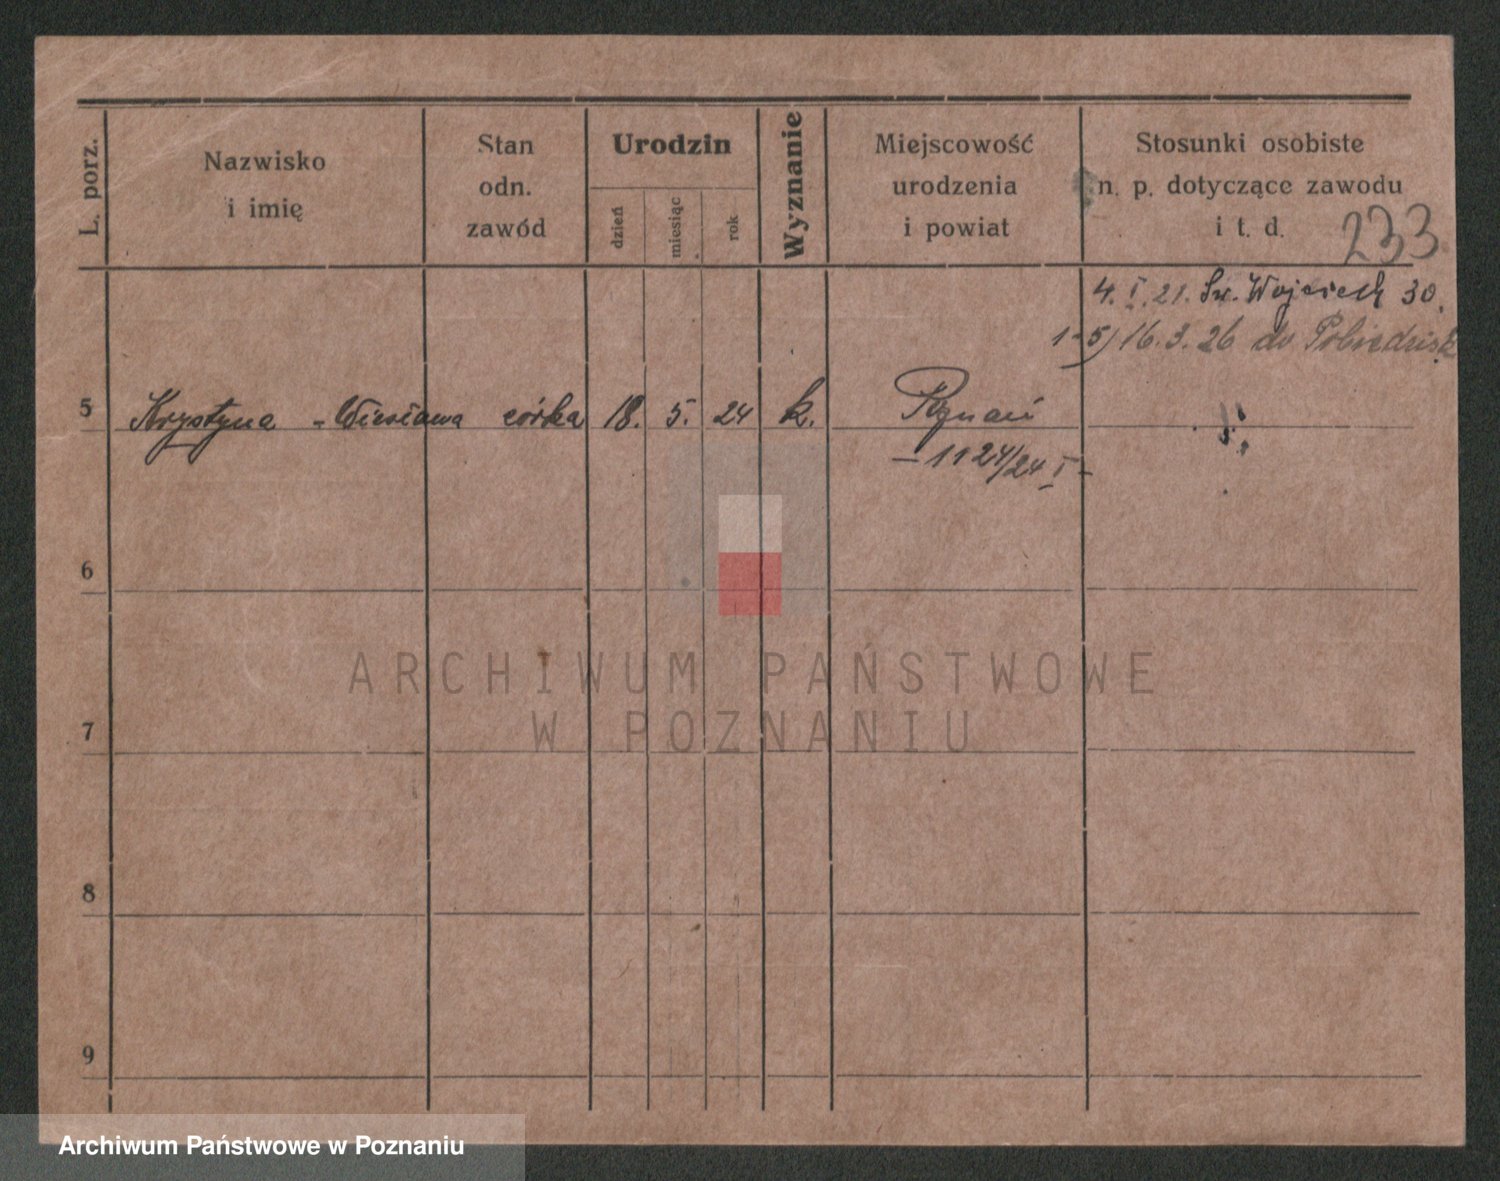 L. porz.
Nazwisko
i imię
Stan
odn.
zawód
Urodzin
dzień
miesiąc
rok
Wyznanie
Miejscowość
urodzenia
i powiat
Stosunki osobiste
n. p. dotyczące zawodu
i t. d.
233
4. I. 21. Św. Wojciech 30.
1-5) 16. 3. 26 do Pobiedzisk
5 Krystyna - Wiesława córka 18. 5. 24 k. Poznań
- 1124/24 I -
6
7
8
9
ARCHIWUM PAŃSTWOWE
W POZNANIU
Archiwum Państwowe w Poznaniu